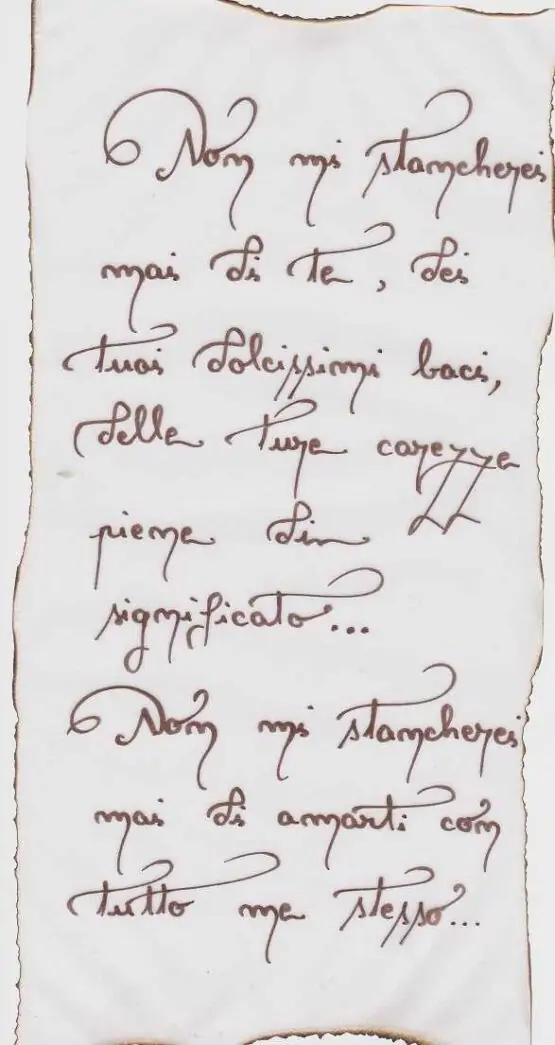 Non mi stancherei
mai di te, dei
tuoi dolcissimi baci,
delle tue carezze
piene di
significato...
Non mi stancherei
mai di amarti con
tutto me stesso...